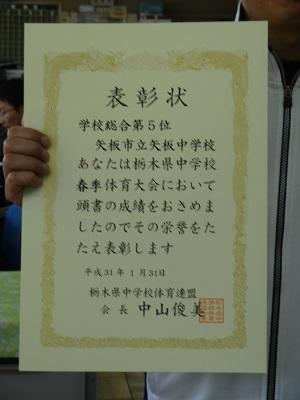 表彰状
学校総合第5位
矢板市立矢板中学校
あなたは栃木県中学校
春季体育大会において
頭書の成績をおさめま
したのでその栄誉をた
たえ表彰します
平成31年1月31日
栃木県中学校体育連盟
会長 中山俊美